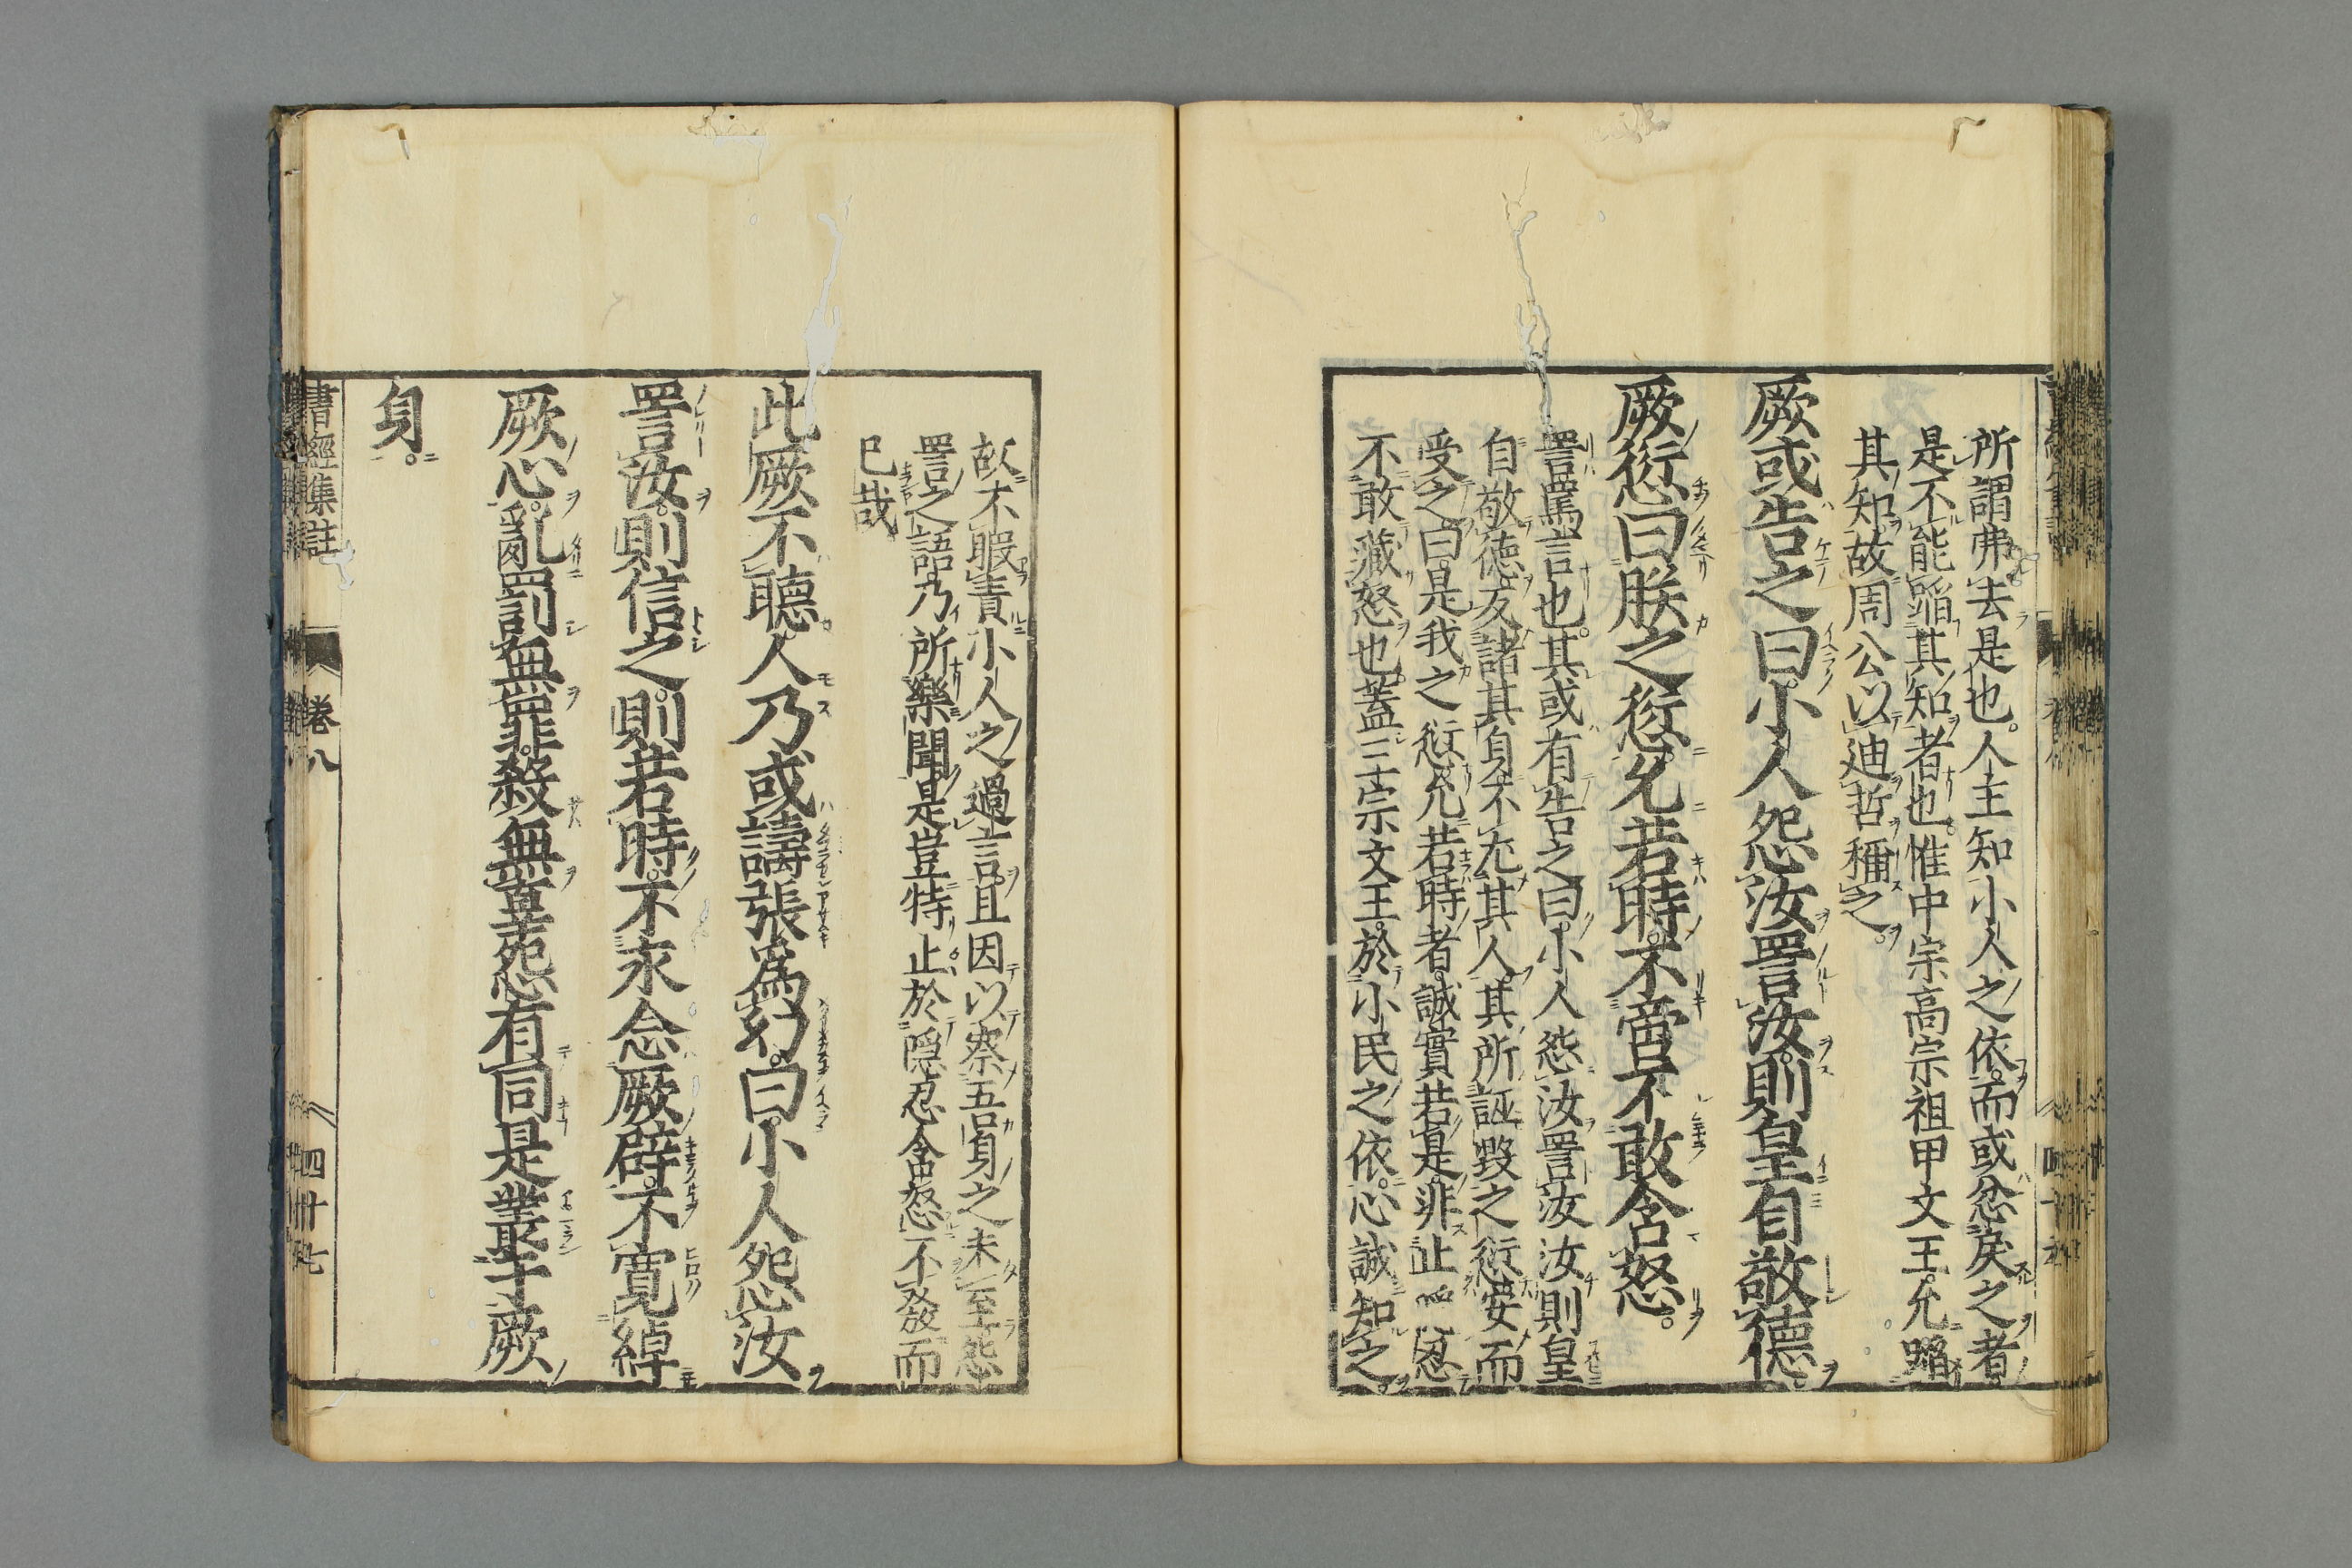 所謂弗去是也。人主知小人之依。而或忿戾之者。
是不能蹈其知者也。惟中宗高宗祖甲文王。允蹈
其知。故周公以迪哲稱之。
厥或告之曰。小人怨汝詈汝。則皇自敬德。
厥愆曰。朕之愆。允若時。不啻不敢含怒。
詈罵言也。其或有告之曰。小人怨汝詈汝。汝則皇
自敬德。反諸其身。不尤其人。其所誣毀之愆。安而
受之曰。是我之愆。允若時者。誠實若是。非止隱忍
不敢藏怒也。蓋三宗文王。於小民之依。心誠知之。
故不暇責小人之過言。且因以察吾身之未至。怨
詈之語。乃所樂聞。是豈特止於隱忍含怒。不發而
已哉。
此厥不聽。人乃或譸張爲幻。曰。小人怨汝
詈汝。則信之。則若時。不永念厥辟。不寬綽
厥心。亂罰無罪。殺無辜。怨有同。是叢于厥
身。
書經集註 卷八 四十七